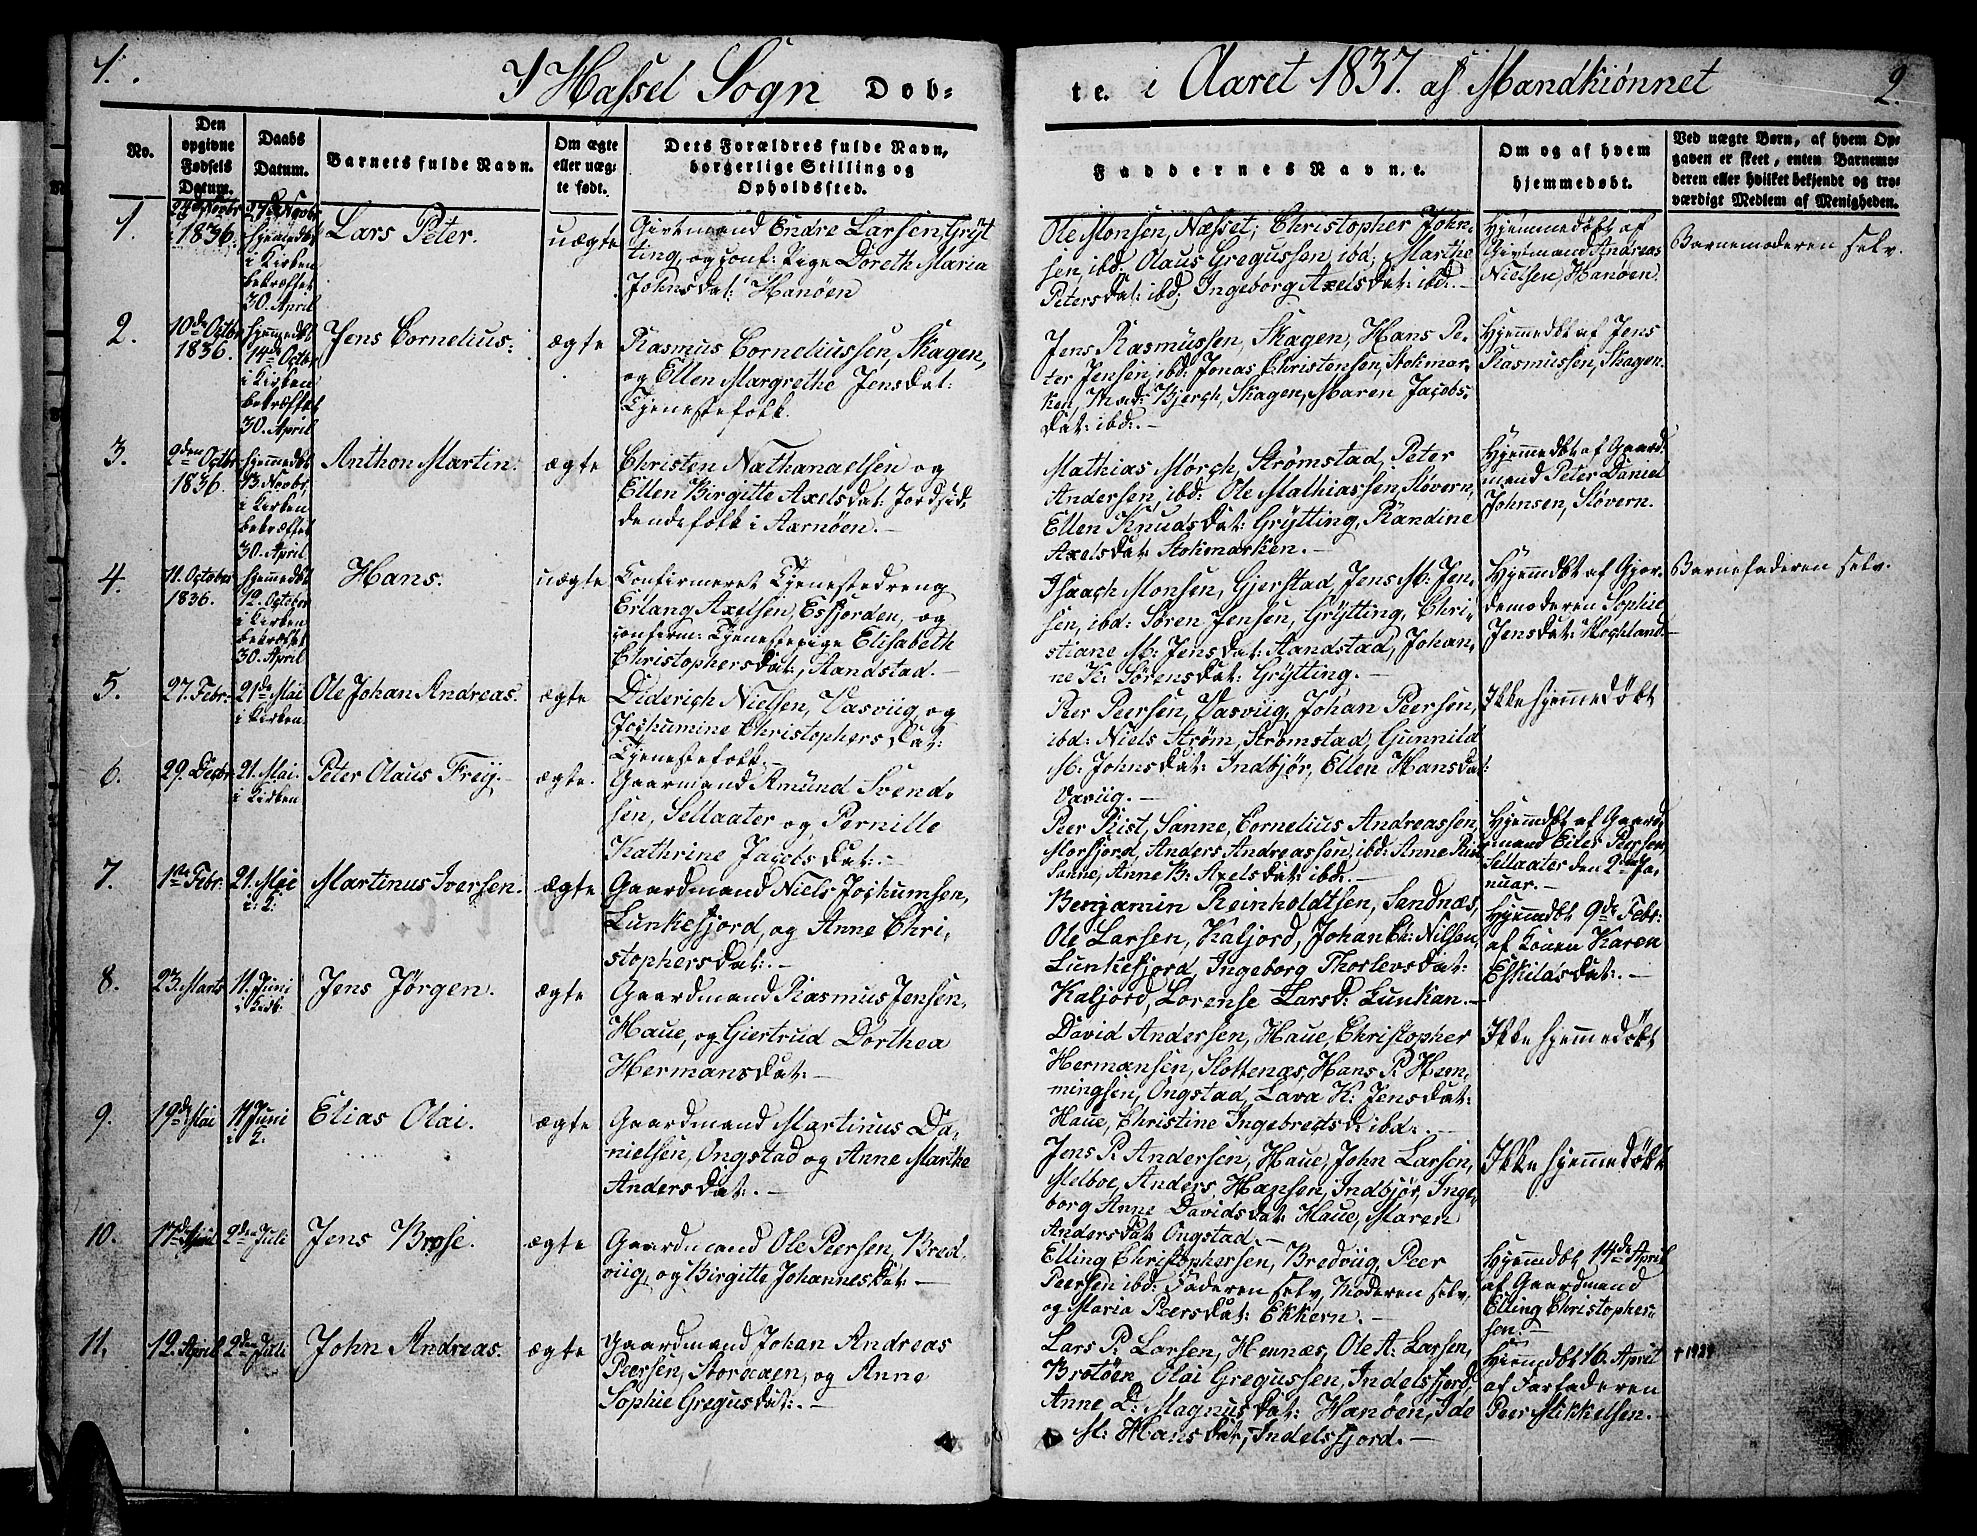 1.
I Hassel Sogn Dob-
te. i Aaret 1837. af Mandkiønnet
2.
No.
Den opgivne Fødsels Datum.
Daabs Datum.
Barnets fulde Navn.
Om ægte eller uæg-
te født.
Dets Forældres fulde Navn,
borgerlige Stilling og
Opholdssted.
Faddernes Navn. e.
Om og af hvem
hjemmedøbt.
Ved uægte Børn, af hvem Op-
gaven er skeet, enten Barnemo-
deren eller hvilket bekjendt og tro-
værdigt Medlem af Menigheden.
1.
24de Novbr
1836.
27de Novbr
hjemmedøbt
i Kirken
bekræftet
30. April
Lars Peter.
uægte
Givtmand Endre Larsen, Gryt
ting, og conf: Pige Doreth Maria
Johnsdat: Hanøen
Ole Monsen, Næsset; Christopher John-
sen, ibd: Olaus Gregussen, ibd; Marthe
Petersdat: ibd; Ingeborg Axelsdat: ibd:.-
Hjemmedøbt af
Givtmand Andreas
Nielsen, Hanøen.
Barnemoderen selv.
2.
10de Octbr
1836.
hjemmedøbt
14de Octbr
i Kirken
bekræftet
30. April
Jens Cornelius.
ægte
Rasmus Corneliussen, Skagen,
og Ellen Margrethe Jensdat:
Tjenestefolk.
Jens Rasmussen, Skagen, Hans Pe-
ter Jensen, ibd: Jonas Christensen, Stokmar-
ken, Mad: Bjerch, Skagen, Maren Jacobs-
dat: ibd:.-
Hjemmedøbt af Jens
Rasmussen, Skagen.
3.
9den Octbr
1836.
hjemmedøbt
13 Novbr
i Kirken
bekræftet
30. April
Anthon Martin.
ægte
Christen Nathanaelsen og
Ellen Birgitte Axelsdat: Jordsid-
dendefolk i Aarnøen.-
Mathias Mörch, Strømstad, Peter
Andersen, ibd: Ole Mathiassen, Slövern,
Ellen Knudsdat: Grÿtting, Randine
Axelsdat: Stokmarken.-
Hjemmedøbt af Gaard-
mand Peter Daniel
Johnsen, Slövern.
4.
11. October
1836.
hjemmedøbt
12. October
i Kirken
bekræftet
30. April
Hans.
uægte
Confirmeret Tjenestedreng
Erlang Axelsen, Esfjorden, og
confirm: Tjenestepige Elisabeth
Christophersdat:, Aandstad.-
Isaach Monsen, Gjerstad, Jens M. Jen-
sen, ibd: Sören Jensen, Grÿtting, Chri-
stiane M: Jensdat: Aandstad, Johan-
ne K: Sörensdat: Grÿtting.-
Hjemmdøbt af Gjor-
demoderen Sophie
Jensdat: Vochland.
Barnefaderen selv.
5.
27. Febr.
21de Mai
i Kirken
Ole Johan Andreas.
ægte
Diderich Nielsen, Vasviig, og
Jochumine Christophersdat:
Tjenestefolk.-
Peer Peersen, Vasviig, Johan Peersen,
ibd: Niels Strøm, Strømstad, Gunnild
M: Johnsdat: Indbjör, Ellen Hansdat:
Vaviig.-
Ikke hjemmedøbt
6.
29. Decbr
21. Mai.
i Kirken
Peter Olaus Freÿ.-
ægte.
Gaarmand Amund Svend-
sen, Sellaater og Pernille
Kathrine Jacobsdat:.-
Peer Rist, Sanne, Cornelius Andreassen,
Morfjord, Anders Andreassen, ibd: Anne Rist
Sanne, Anne B: Axelsdat: ibd:.-
Hjemmdøbt af Gaard-
mand Eiler Peersen
Sellaater den 2den Ja-
nuar.-
7.
1ste Febr.
21. Mai
i: 2:
Martinus Iversen.
ægte
Gaardmand Niels Jochumsen,
Lunkefjord, og Anne Chri-
stophersdat:.-
Benjamin Reinholdtsen, Sandnæs,
Ole Larsen, Kaljord, Johan Ch: Nilsen,
Lunkefjord, Ingeborg Thorlevsdat:
Kaljord, Lorense Larsd: Lunkan.-
Hjemmdøbt 9de Febr:
af Konen Karen
Eskildsdat:.-
8.
23. Marts
11. Juni
i Kirk:
Jens Jörgen.
ægte
Gaardmand Rasmus Jensen,
Haue, og Giertrud Dorthea
Hermansdat:-
David Andersen, Haue, Christopher
Hermansen, Slottenæs, Hans P. Hem-
mingsen, Ongstad, Lava K: Jensdat:
Haue, Christine Ingebretsd: ibd:.-
Ikke hjemmedøbt
9.
19de Mai
11 Juni
i 2:
Elias Olai.
ægte
Gaardmand Martinus Da-
nielsen, Ongstad og Anne Marthe
Andersdat:.-
Jens P. Andersen, Haue, John Larsen,
Melboe, Anders Hansen, Indbjör, Inge-
borg Anne Davidsdat: Haue, Maren
Andersdat: Ongstad.-
Ikke hjemmedøbt
10.
2den Juli
Jens Brose.
ægte
Gaardmand Ole Peersen, Bred-
viig, og Birgitte Johannesdat:-
Elling Christophersen, Bredviig, Peer
Peersen ibd: Faderen selv, Moderen selv,
og Maria Peersdat: Ekkern.-
Hjemmdøbt 14de April
af Gaardmand
Elling Christopher-
sen.-
11.
12. April
2den Juli
John Andreas.
ægte
Gaardmand Johan Andreas
Peersen, Storaaen, og Anne
Sophie Gregusdat:.-
Lars P. Larsen, Hennæs, Ole A: Larsen,
Brotöen, Olai Gregussen, Indelsfjord,
Anne D: Magnusdat: Hanöen, Ide
M: Hansdat:, Indelsfjord.-
Hjemmdøbt 16. April
af Farfaderen
Peer Mikkelsen.-